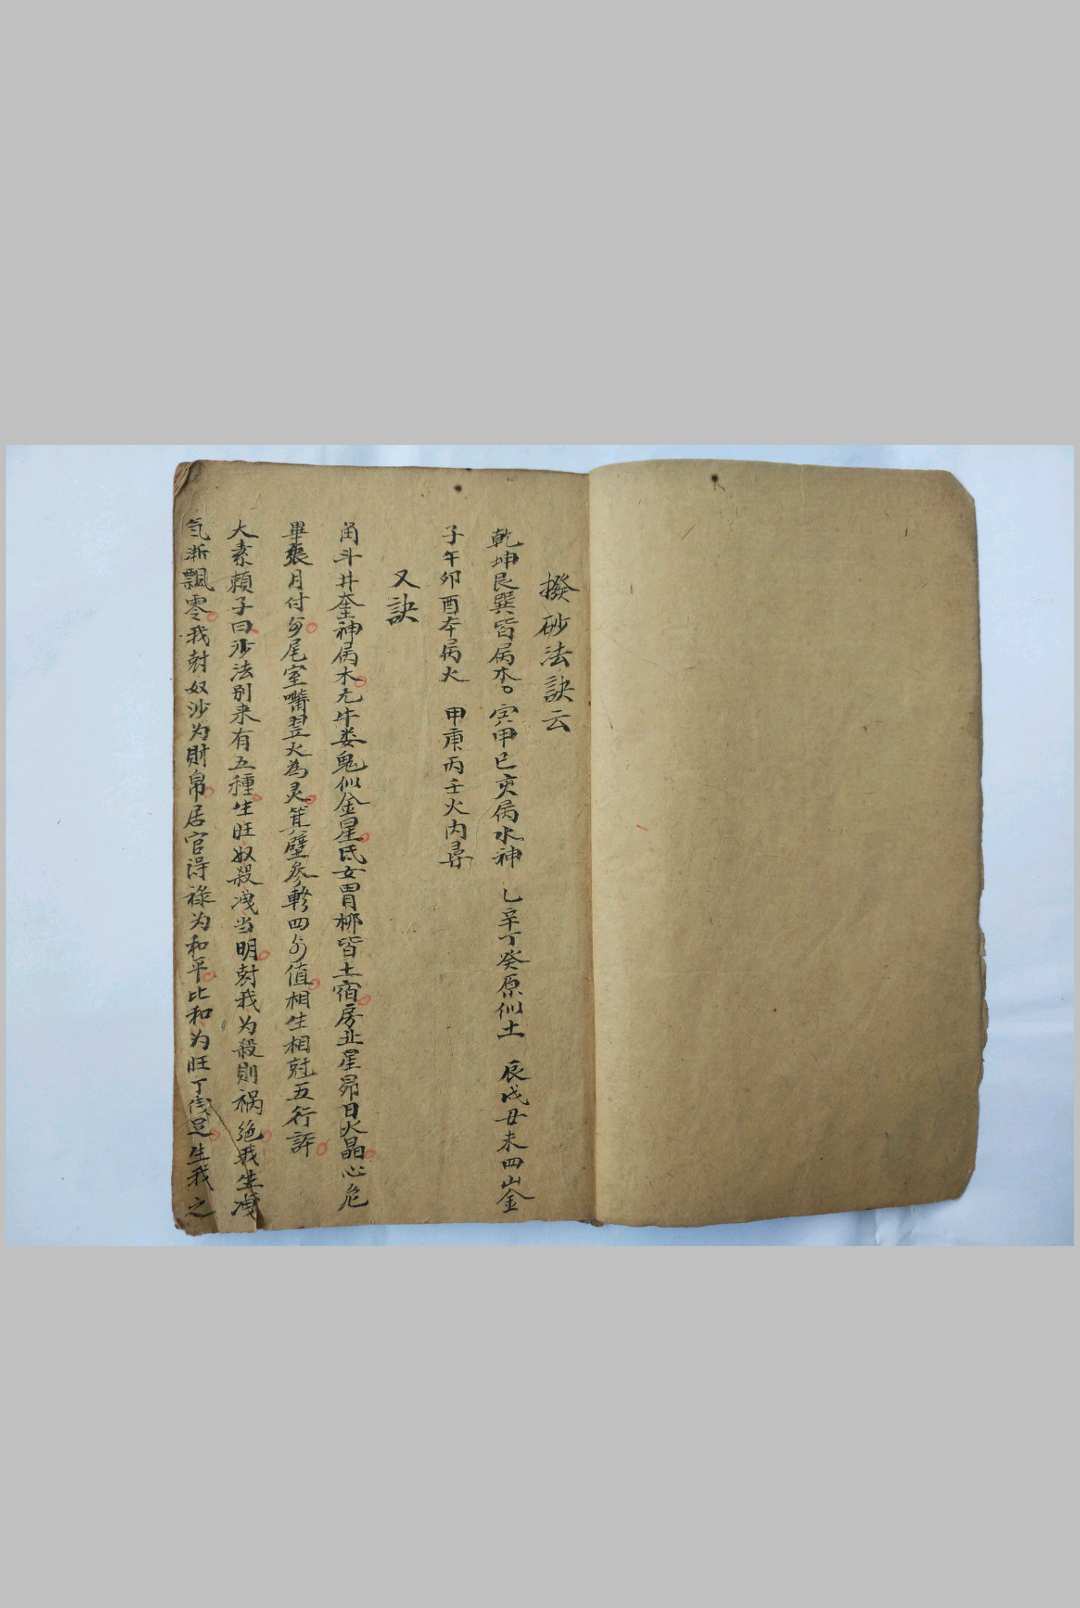 撥砂法訣云
乾坤艮巽皆屬木。寅甲巳亥屬水神 乙辛丁癸原似土 辰戌丑未四山金
子午卯酉本屬火 甲庚丙壬火内尋
又訣
角斗井奎神屬木亢牛娄鬼似金星氐女胃柳皆土宿房虚星昴日火晶心危
畢張月付分尾室嘴翌火為灵箕壁参軫四分值相生相尅五行評
大素賴子曰沙法别来有五種生旺奴殺洩当明尅我为殺則祸絶我生洩
氣漸飄零我尅奴沙为財帛居官得祿为和平比和为旺丁是生我之